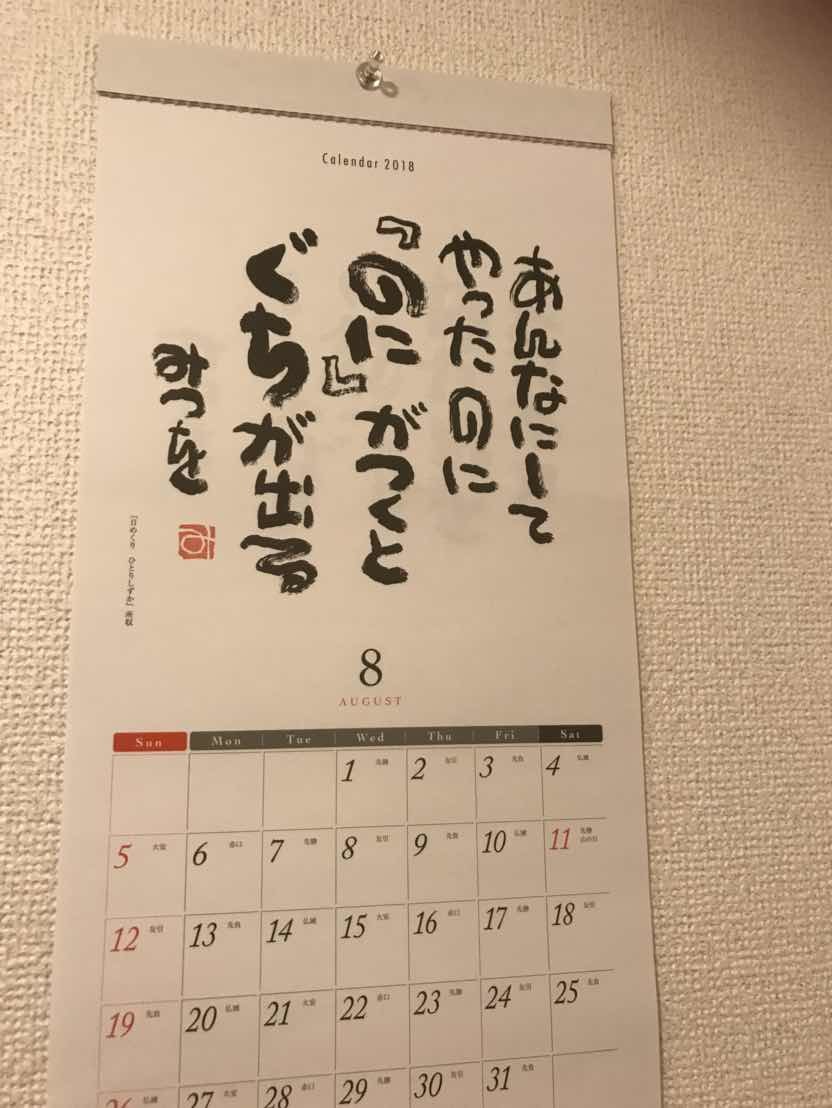 Calendar 2018
あんなにして
やったのに
『のに』がつくと
ぐちが出る
みつを
「日めくり ひとりしずか」所収
8
AUGUST
Sun Mon Tue Wed Thu Fri Sat
1 先勝 2 友引 3 先負 4 仏滅
5 大安 6 赤口 7 先勝 8 友引 9 先負 10 仏滅 11 先勝 山の日
12 友引 13 先負 14 仏滅 15 大安 16 赤口 17 先勝 18 友引
19 先負 20 仏滅 21 大安 22 赤口 23 先勝 24 友引 25 先負
26 仏滅 27 大安 28 赤口 29 先勝 30 友引 31 先負